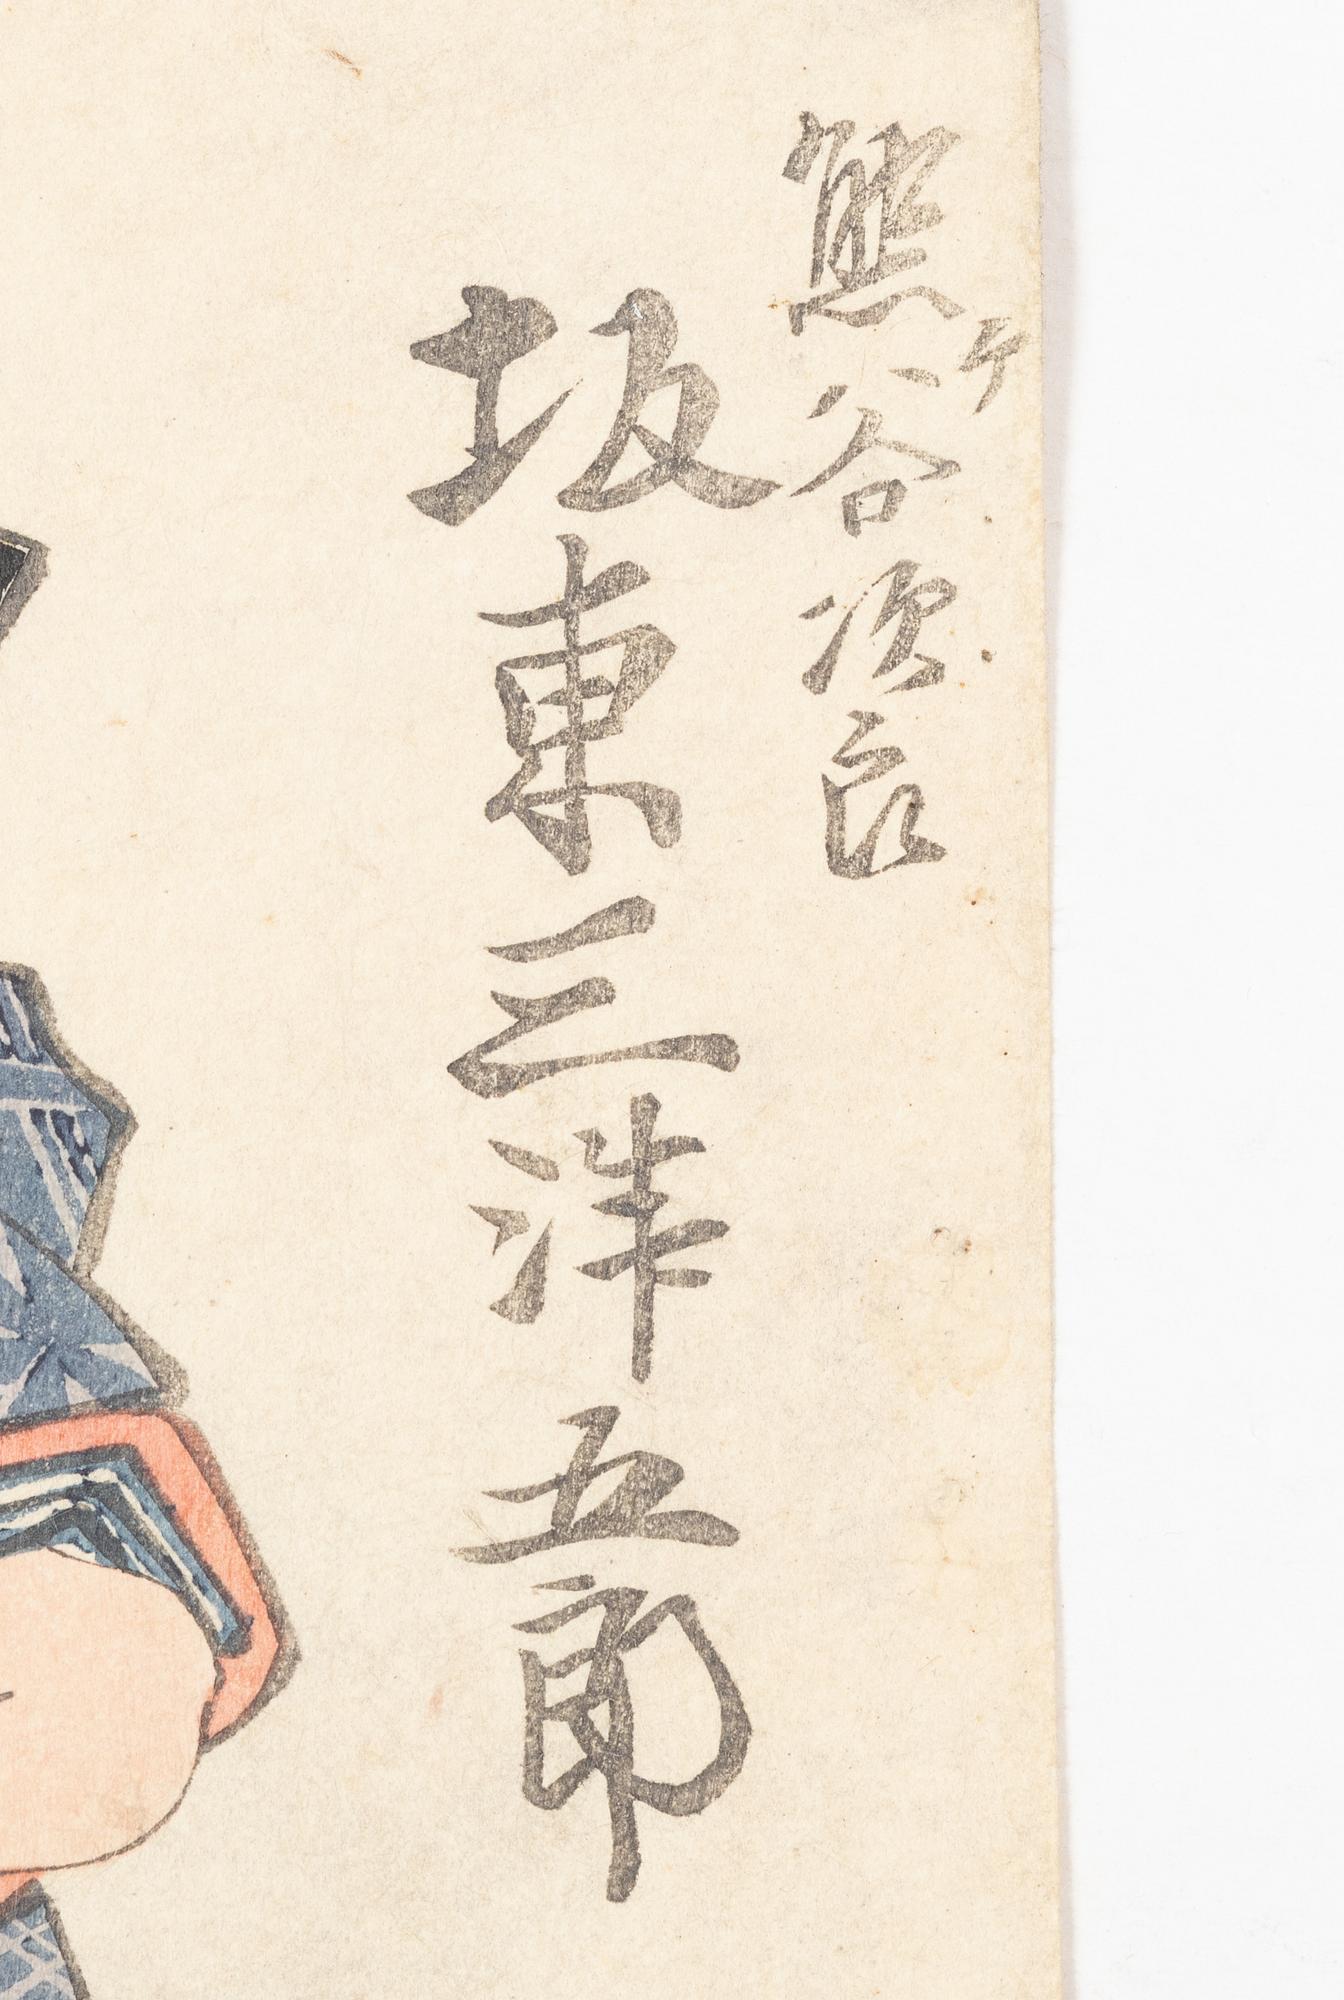 熊ケ谷次良
坂東三津五郎